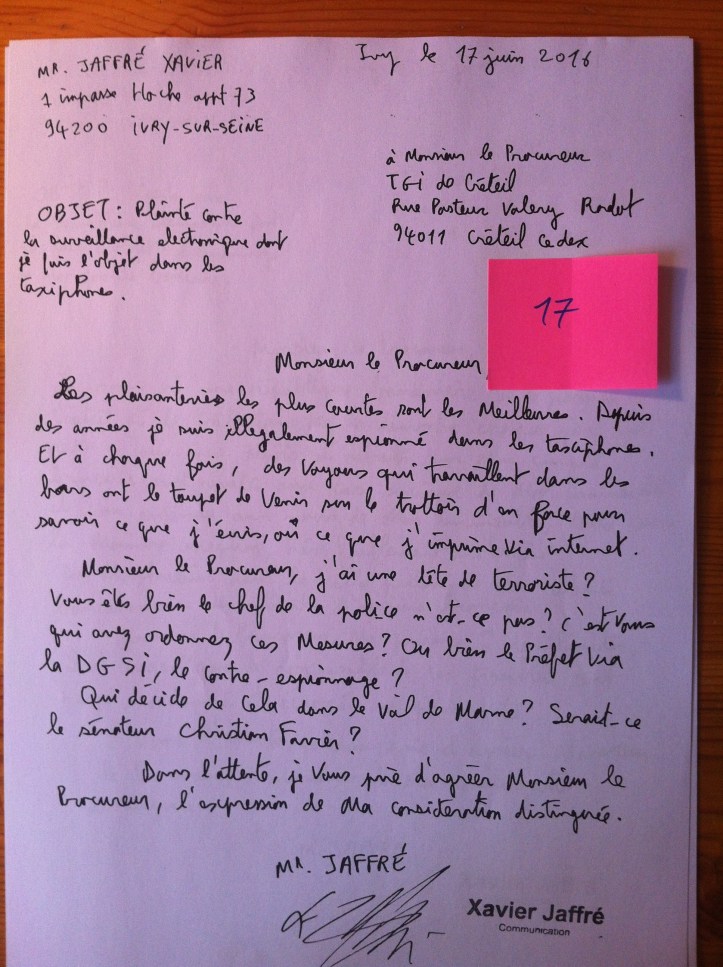 MR. JAFFRÉ XAVIER
1 impasse Hoche appt 73
94200 IVRY-SUR-SEINE
Ivry le 17 juin 2016
à Monsieur le Procureur
TGI de Créteil
Rue Pasteur Valery Radot
94011 Créteil Cedex
OBJET : Plainte contre
la surveillance electronique dont
je suis l'objet dans les
taxiphones.
17
Monsieur le Procureur,
Les plaisanteries les plus courtes sont les Meilleures. Depuis
des années je suis illegalement espionné dans les taxiphones.
Et à chaque fois, des Voyous qui travaillent dans les
bars ont le toupet de Venir sur le trottoir d'en face pour
savoir ce que j'écris, où ce que j'imprime via internet.
Monsieur le Procureur, j'ai une tête de terroriste ?
Vous êtes bien le chef de la police n'est-ce pas ? C'est Vous
qui avez ordonnez ces Mesures ? Ou bien le Préfet Via
la DGSI, le contre-espionnage ?
Qui décide de cela dans le Val de Marne ? Serait-ce
le sénateur Christian Favier ?
Dans l'attente, je Vous prie d'agréer Monsieur le
Procureur, l'expression de Ma consideration distinguée.
MR. JAFFRÉ
Xavier Jaffré
Communication